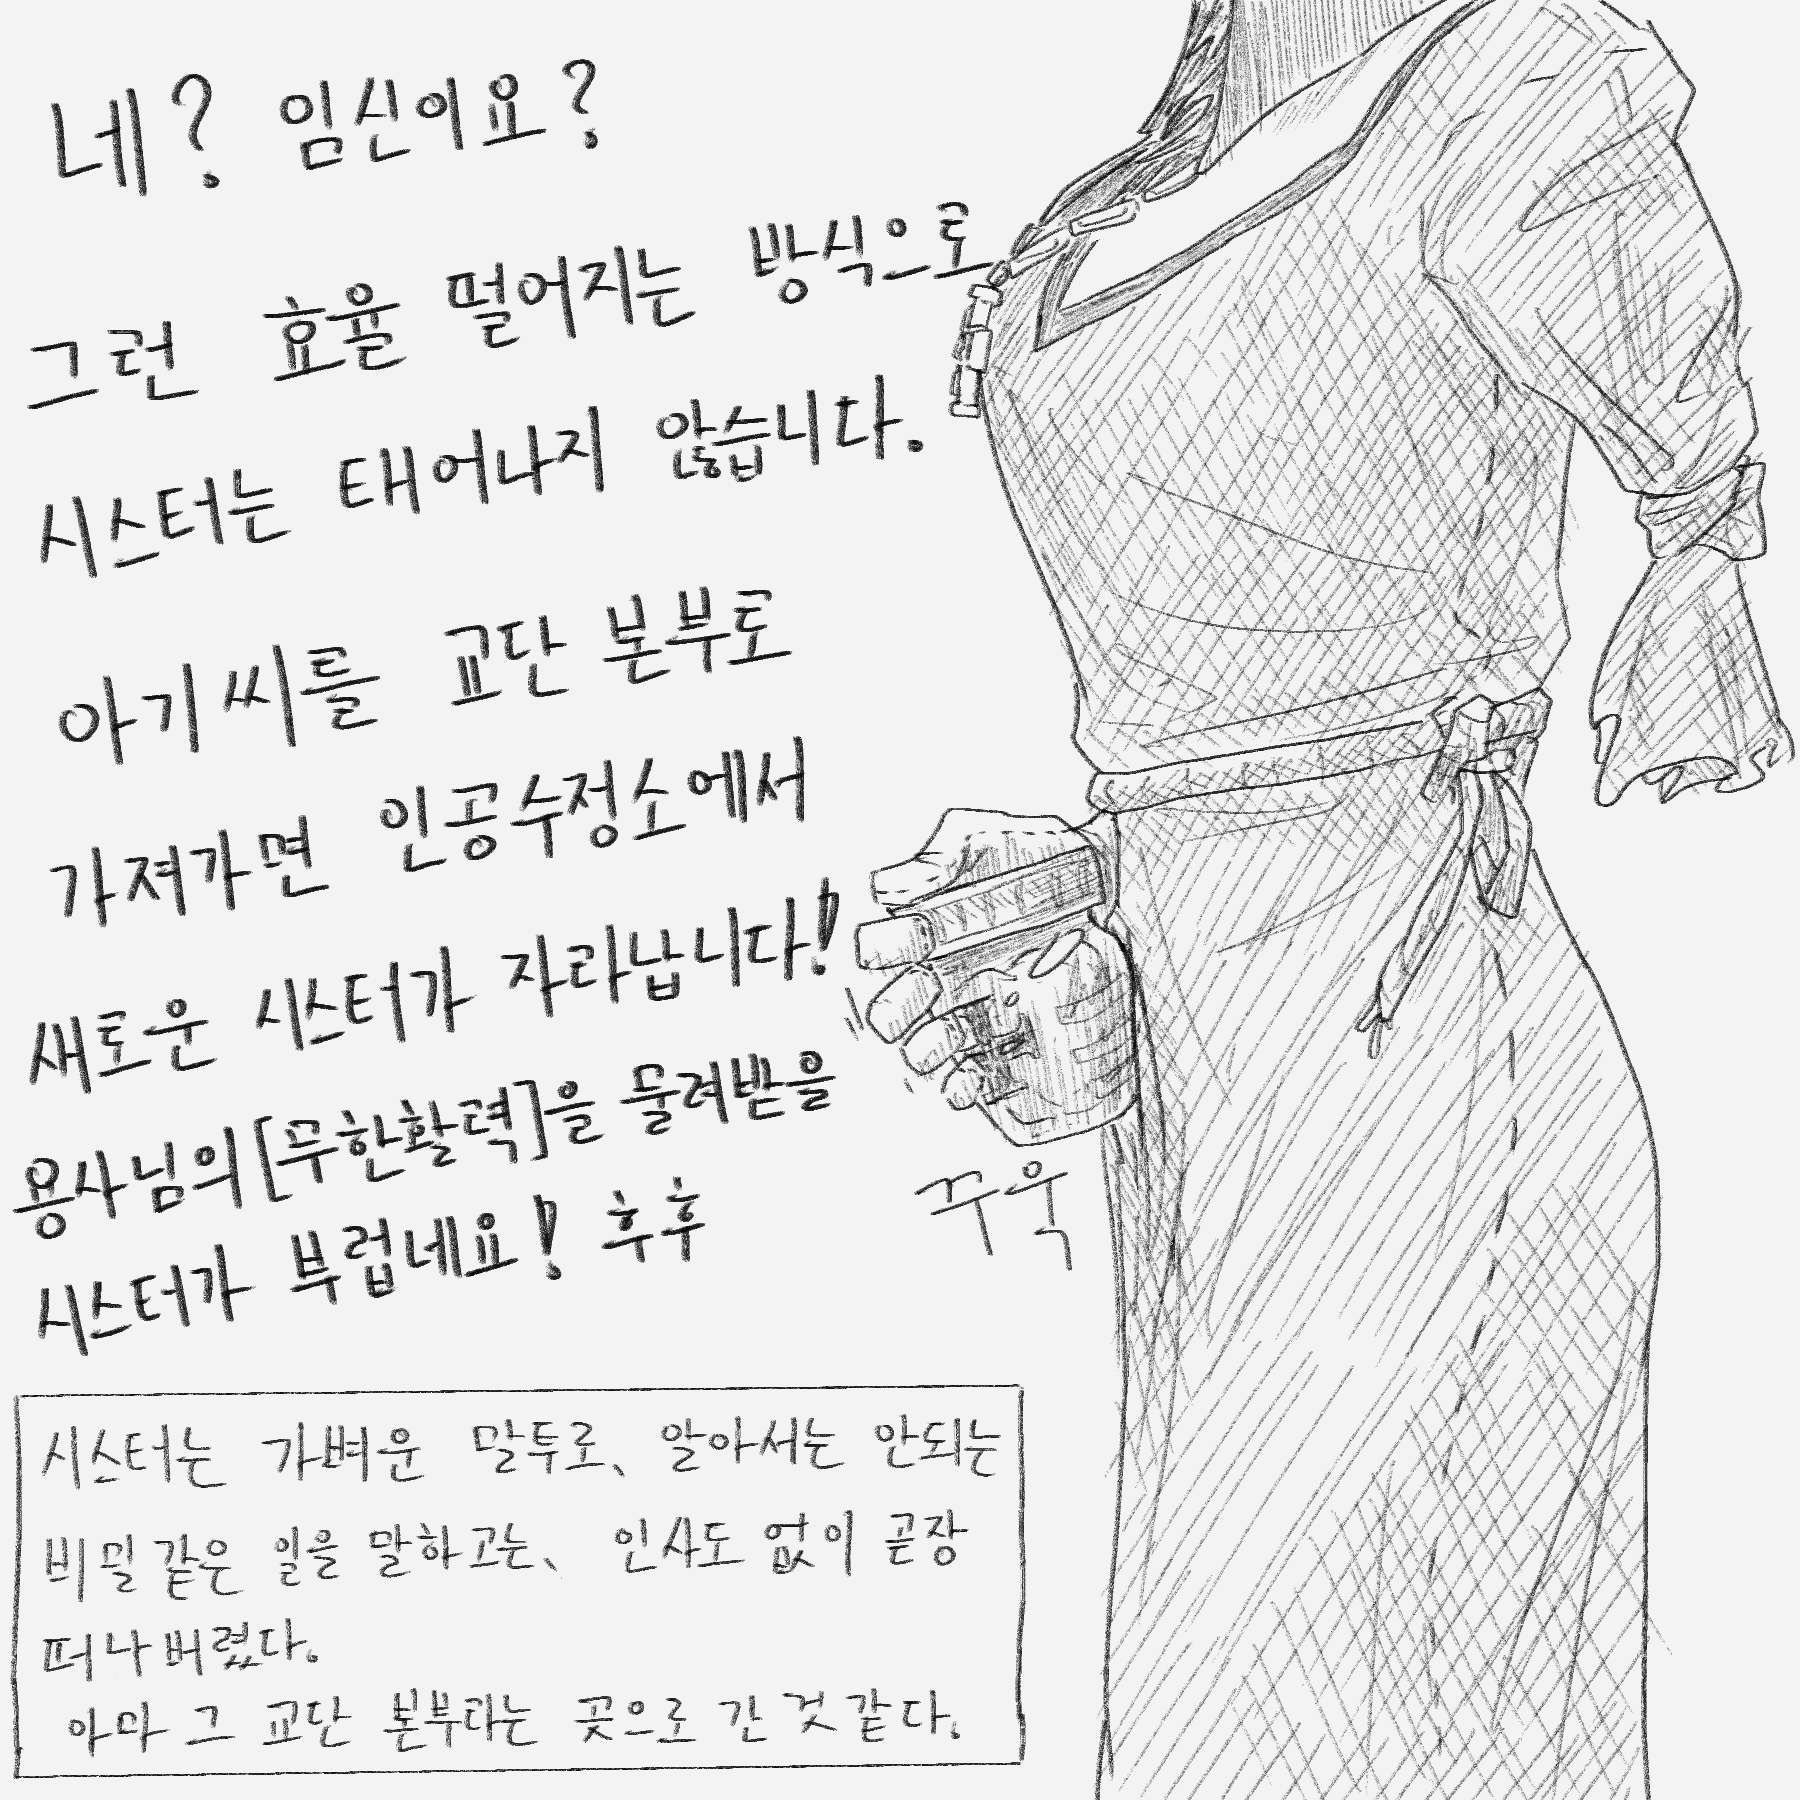 네? 임신이요?
그런 효율 떨어지는 방식으로
시스터는 태어나지 않습니다.
아기씨를 교단 본부로
가져가면 인공수정소에서
새로운 시스터가 자라납니다!
용사님의 [무한활력]을 물려받을
시스터가 부럽네요! 후후
꾸욱
시스터는 가벼운 말투로, 알아서는 안되는
비밀 같은 일을 말하고는, 인사도 없이 곧장
떠나버렸다.
아마 그 교단 본부라는 곳으로 간 것 같다.